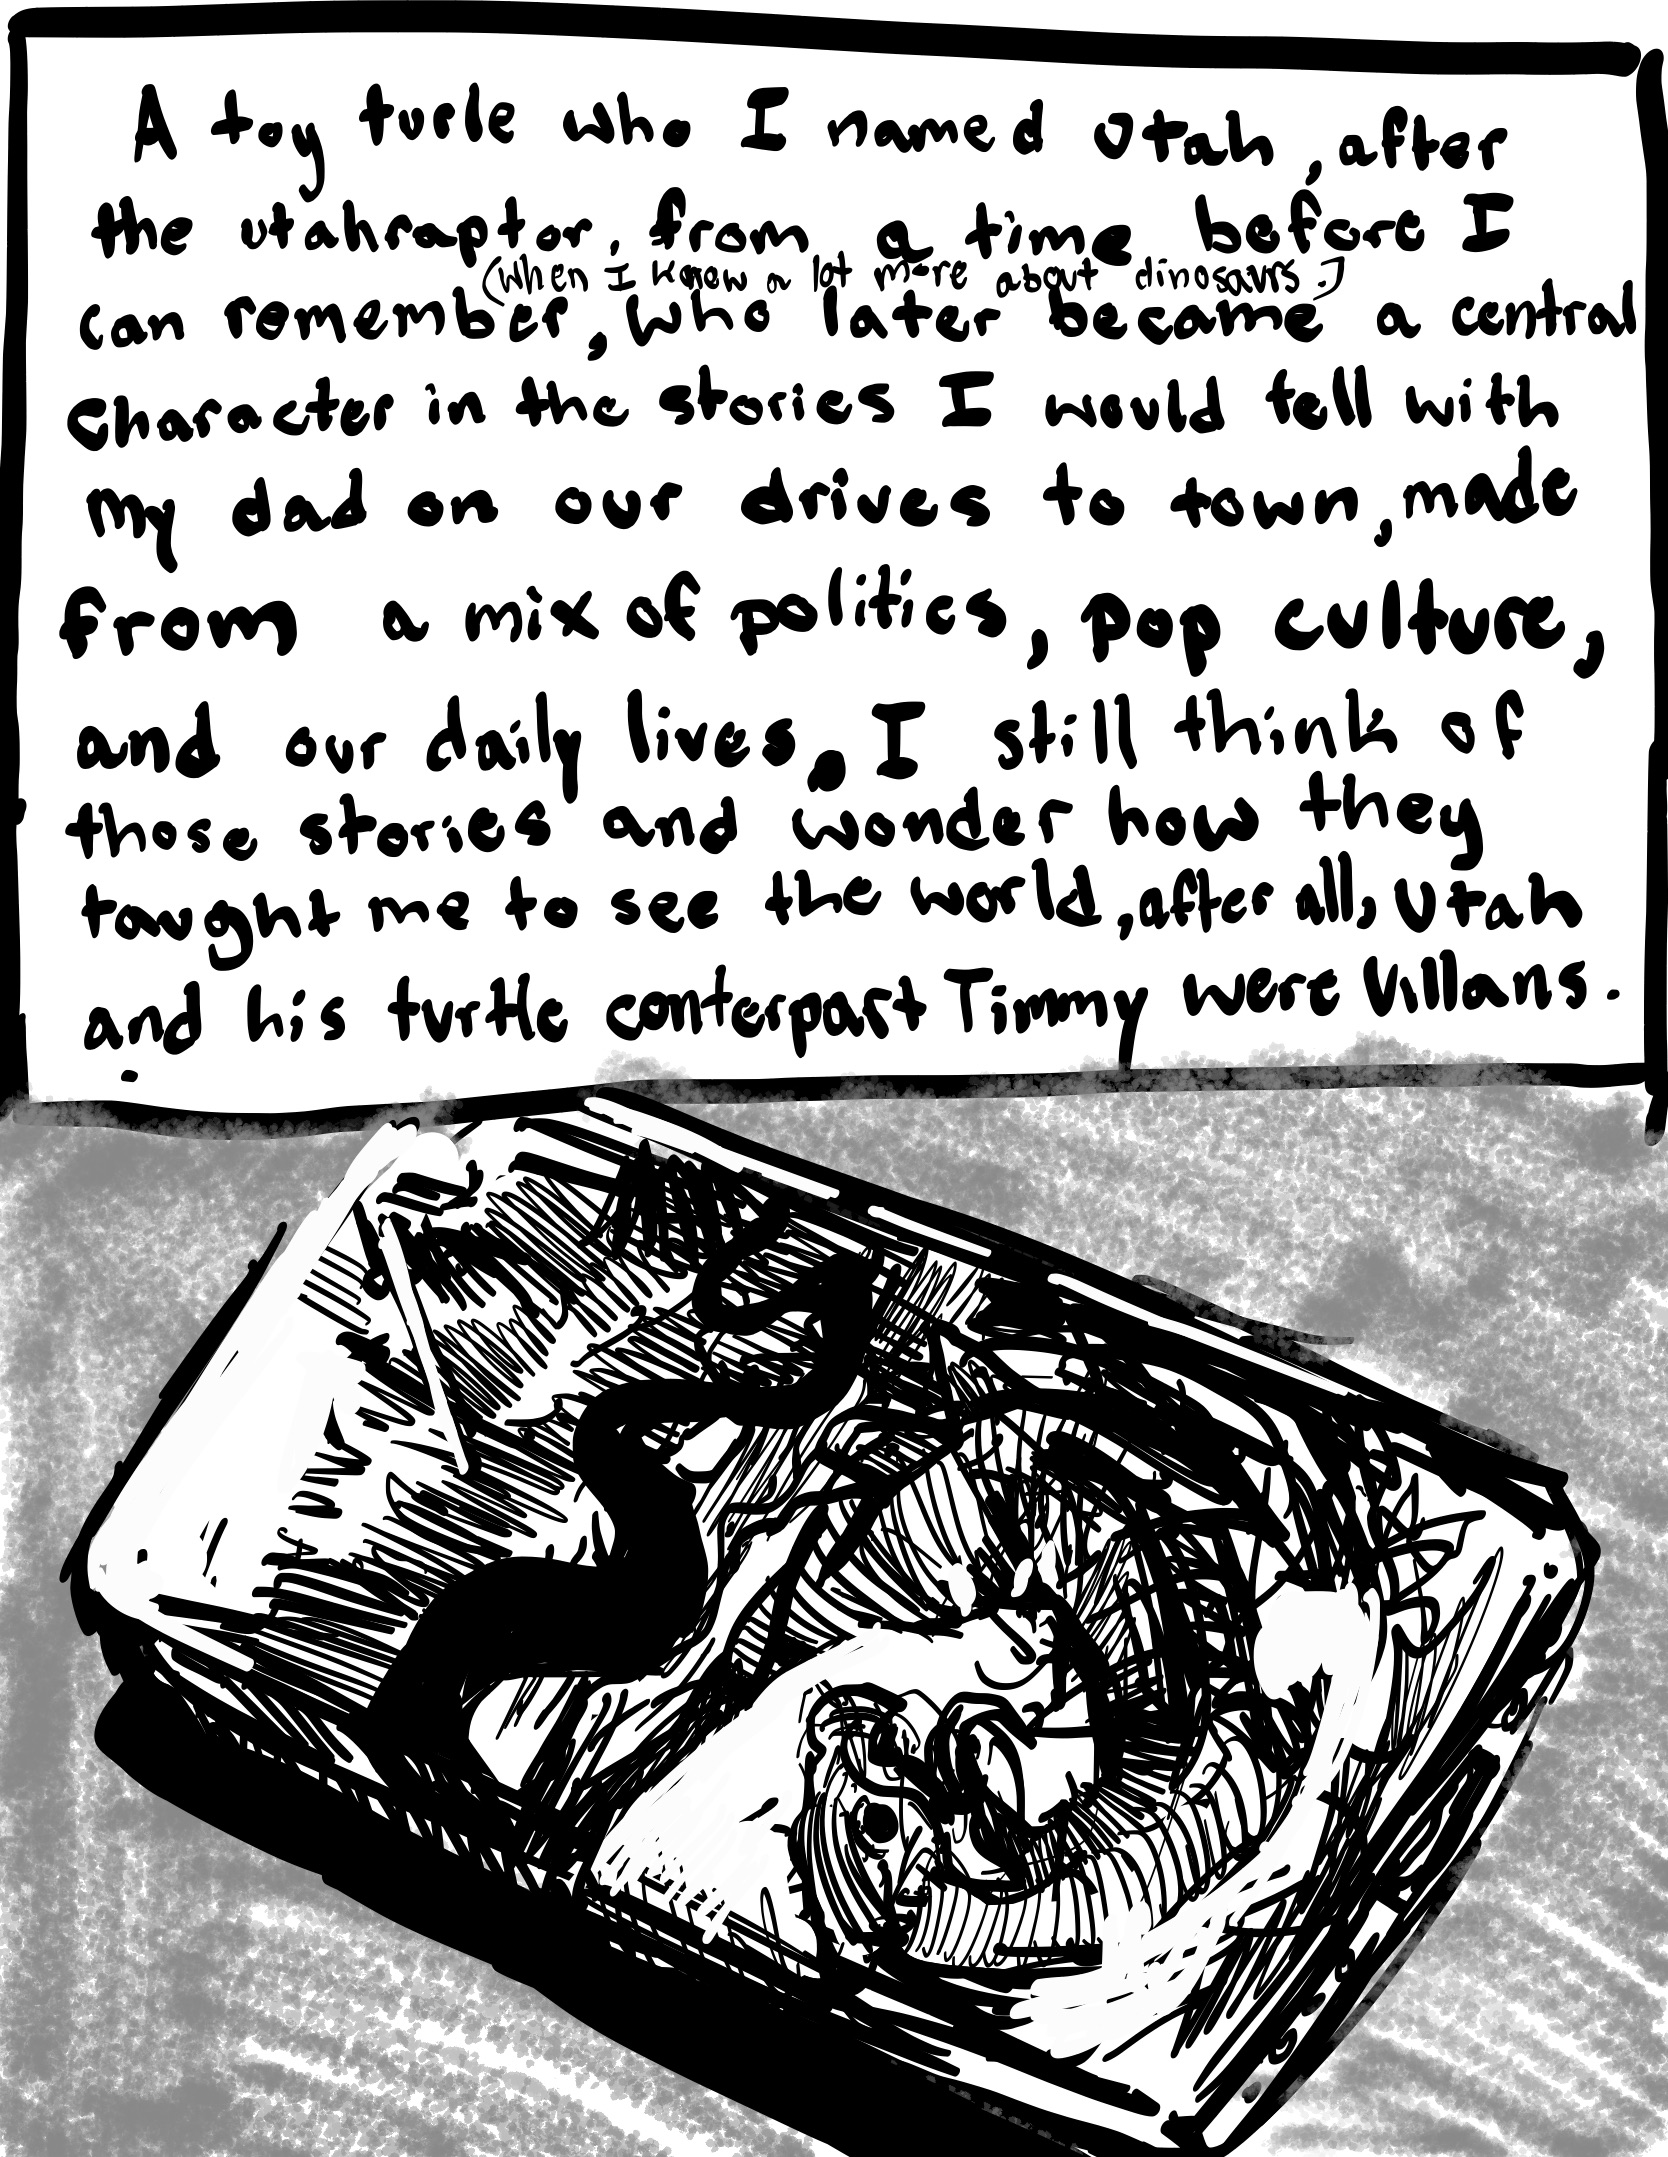 A toy turle who I named Utah, after
the utahraptor, from a time before I
(when I knew a lot more about dinosaurs.)
can remember, who later became a central
character in the stories I would tell with
my dad on our drives to town, made
from a mix of politics, pop culture,
and our daily lives. I still think of
those stories and wonder how they
taught me to see the world, after all, Utah
and his turtle conterpart Timmy were Villans.